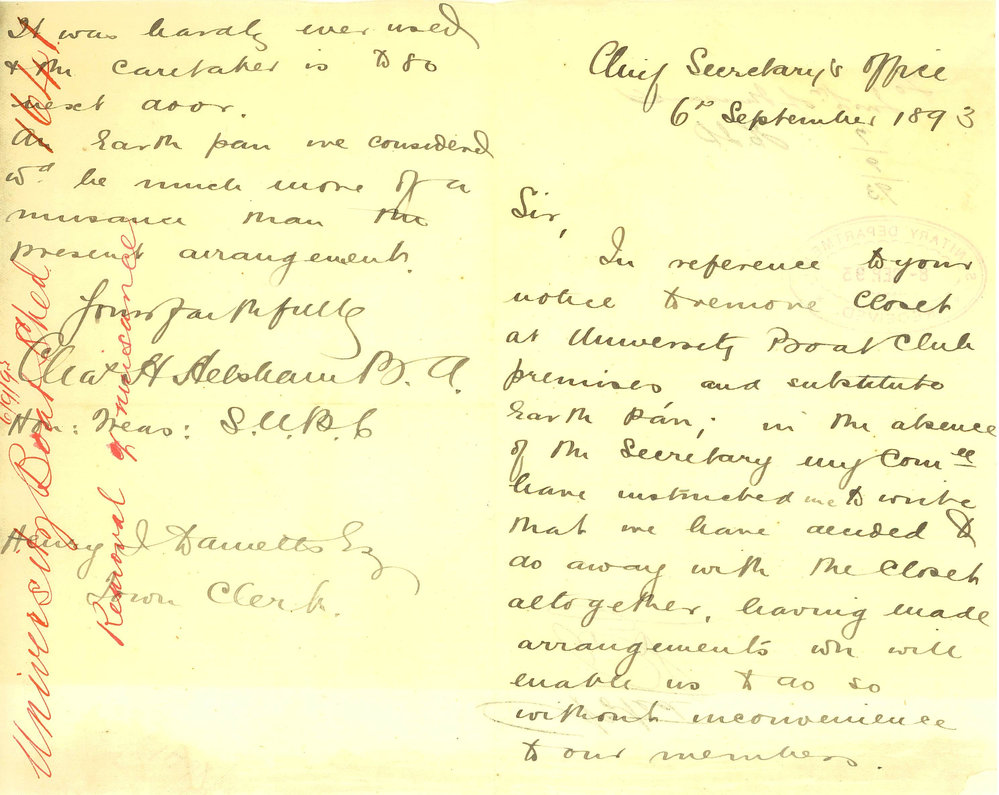 Chief Secretary's Office
6th September 1893
Sir,
In reference to your
notice to remove closet
at University Boat Club
premises and substitute
Earth Pan; in the absence
of the Secretary my Comee
have instructed me to write
that we have decided to
do away with the closet
altogether, having made
arrangements wh will
enable us to do so
without inconvenience
to our members.
It was hardly ever used
& the caretaker is to go
next door.
An Earth pan we considered
wd be much more of a
nuisance than the
present arrangement.
Yours faithfully
Chas H Helsham B.A.
Hon: Treas: S.U.B.C
Henry J Esq
Town Clerk.
University Boat Shed
6/9/93
Removal of nuisance